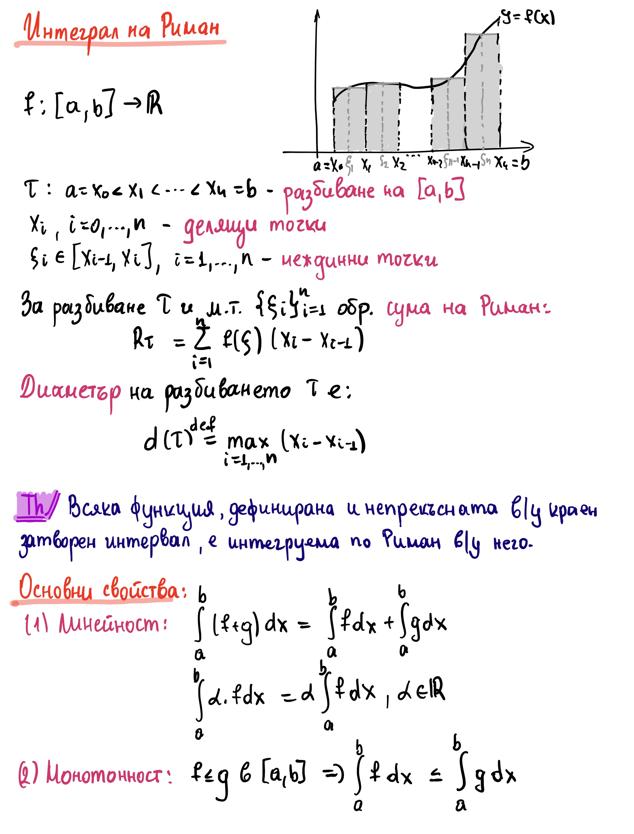 Интеграл на Риман
y = f(x)
f: [a,b] → ℝ
a=x₀ ξ₁ x₁ ξ₂ x₂ ... xₙ₋₂ ξₙ₋₁ xₙ₋₁ ξₙ xₙ=b
τ: a = x₀ < x₁ < ... < xₙ = b - разбиване на [a,b]
xᵢ, i=0,...,n - делящи точки
ξᵢ ∈ [xᵢ₋₁, xᵢ], i=1,...,n - междинни точки
За разбиване τ и м.т. {ξᵢ}ⁿᵢ₌₁ обр. сума на Риман:
Rτ = ∑ⁿᵢ₌₁ f(ξ) (xᵢ - xᵢ₋₁)
Диаметър на разбиването τ е:
d(τ) def= max i=1,...,n (xᵢ - xᵢ₋₁)
Th/ Всяка функция, дефинирана и непрекъсната в/у краен
затворен интервал, е интегруема по Риман в/у него.
Основни свойства:
(1) Линейност: ∫ₐᵇ (f+g) dx = ∫ₐᵇ f dx + ∫ₐᵇ g dx
∫ₐᵇ α.f dx = α ∫ₐᵇ f dx, α∈ℝ
(2) Монотонност: f ≤ g в [a,b] => ∫ₐᵇ f dx ≤ ∫ₐᵇ g dx